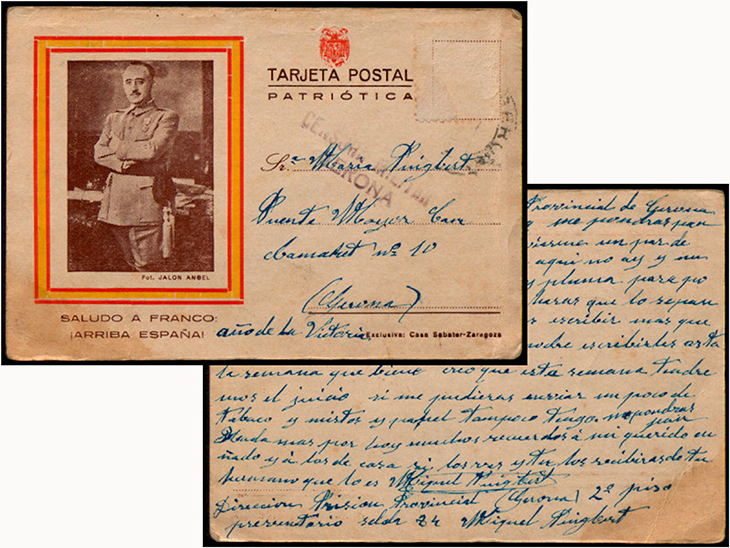 TARJETA POSTAL
PATRIÓTICA
CENSURA MILITAR
GERONA
Sra. Maria Puigbert
Puente Mayor Can
Camaret nº 10
(Gerona)
año de la Victoria
Fot. JALON ANGEL
SALUDO A FRANCO:
¡ARRIBA ESPAÑA!
Exclusiva: Casa Sabater-Zaragoza
Provincial de Gerona
y me pondras pan
un par de
aqui no ay y un
y pluma para po
que lo sepan
escribir mas que
podre escribirles asta
la semana que biene creo que esta semana tendre
mos el juicio si me pudieras enviar un poco de
tabaco y mistos y papel tampoco tengo me pondras pan
Nada mas por hoy muchos recuerdos a mi querido cu
ñado y á los de casa si los ves y tu los recibiras de tu
hermano que lo es Miquel Puigbert
Direccion Prision Provincial (Gerona) 2º piso
selda 24 Miquel Puigbert